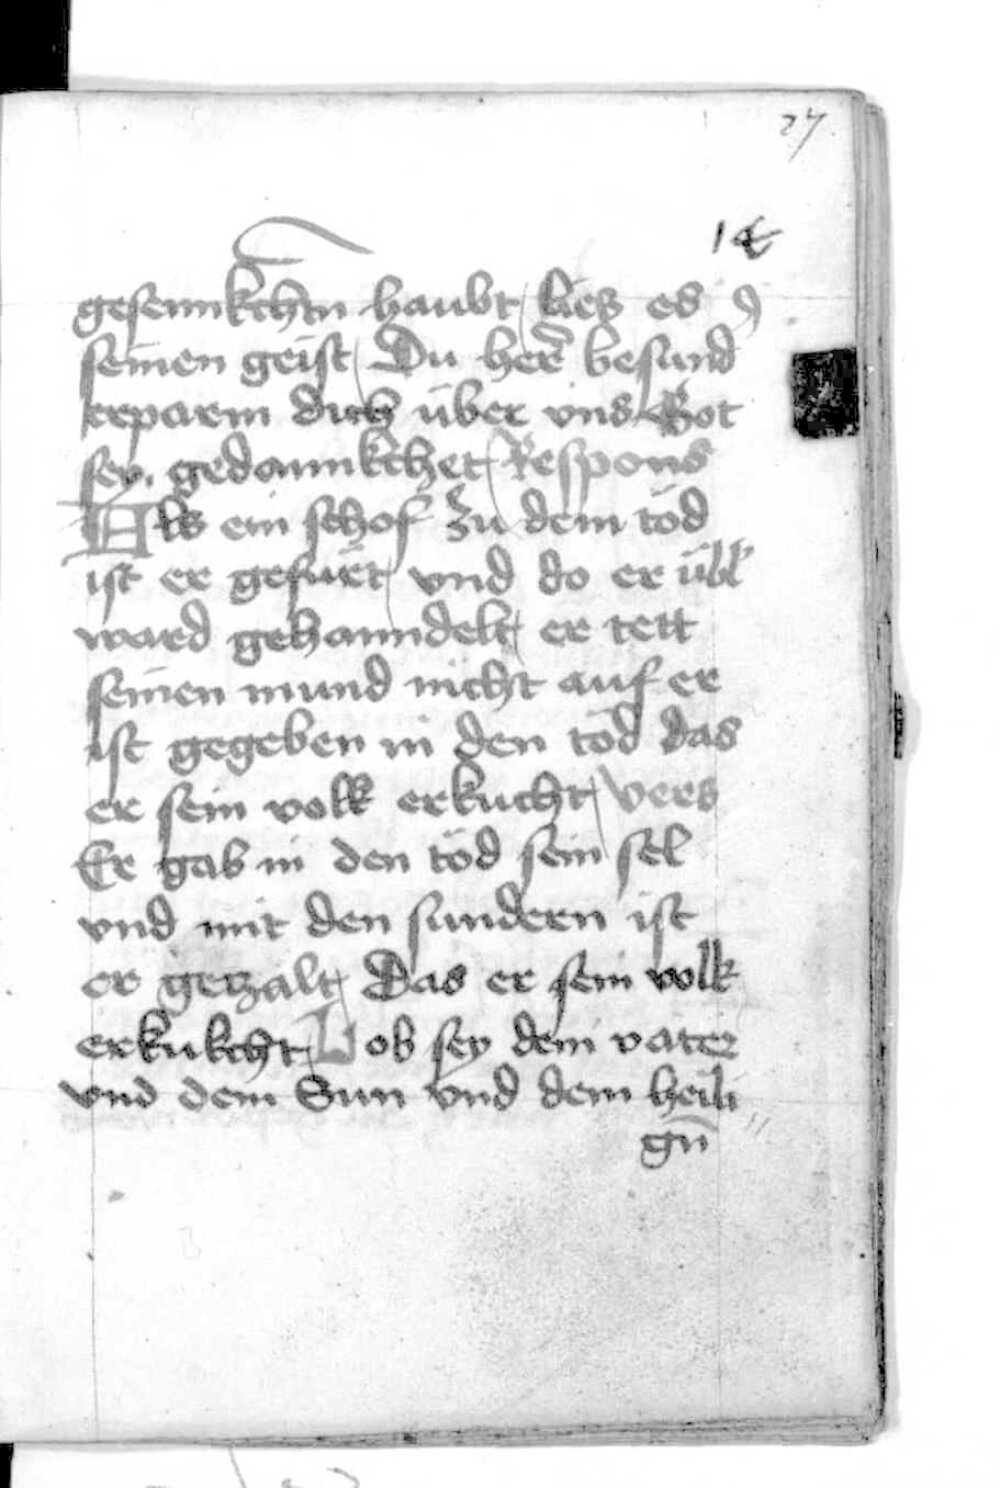 27
gesennkchtm haubt lies es
seinen geist Du herr besund
erparm dich über vns Got
sey gedannkchet Respons
Als ein schof zu dem tod
ist er gefurt vnd do er übl
ward gehanndelt er tett
seinen mund nicht auf er
ist gegeben in den tod das
er sein volk erkucht vers
Er gab in den töd sein sel
vnd mit den sundern ist
er geczalt Das er sein volk
erkukcht Lob sey dem vater
vnd dem Sun vnd dem heili
gn̄